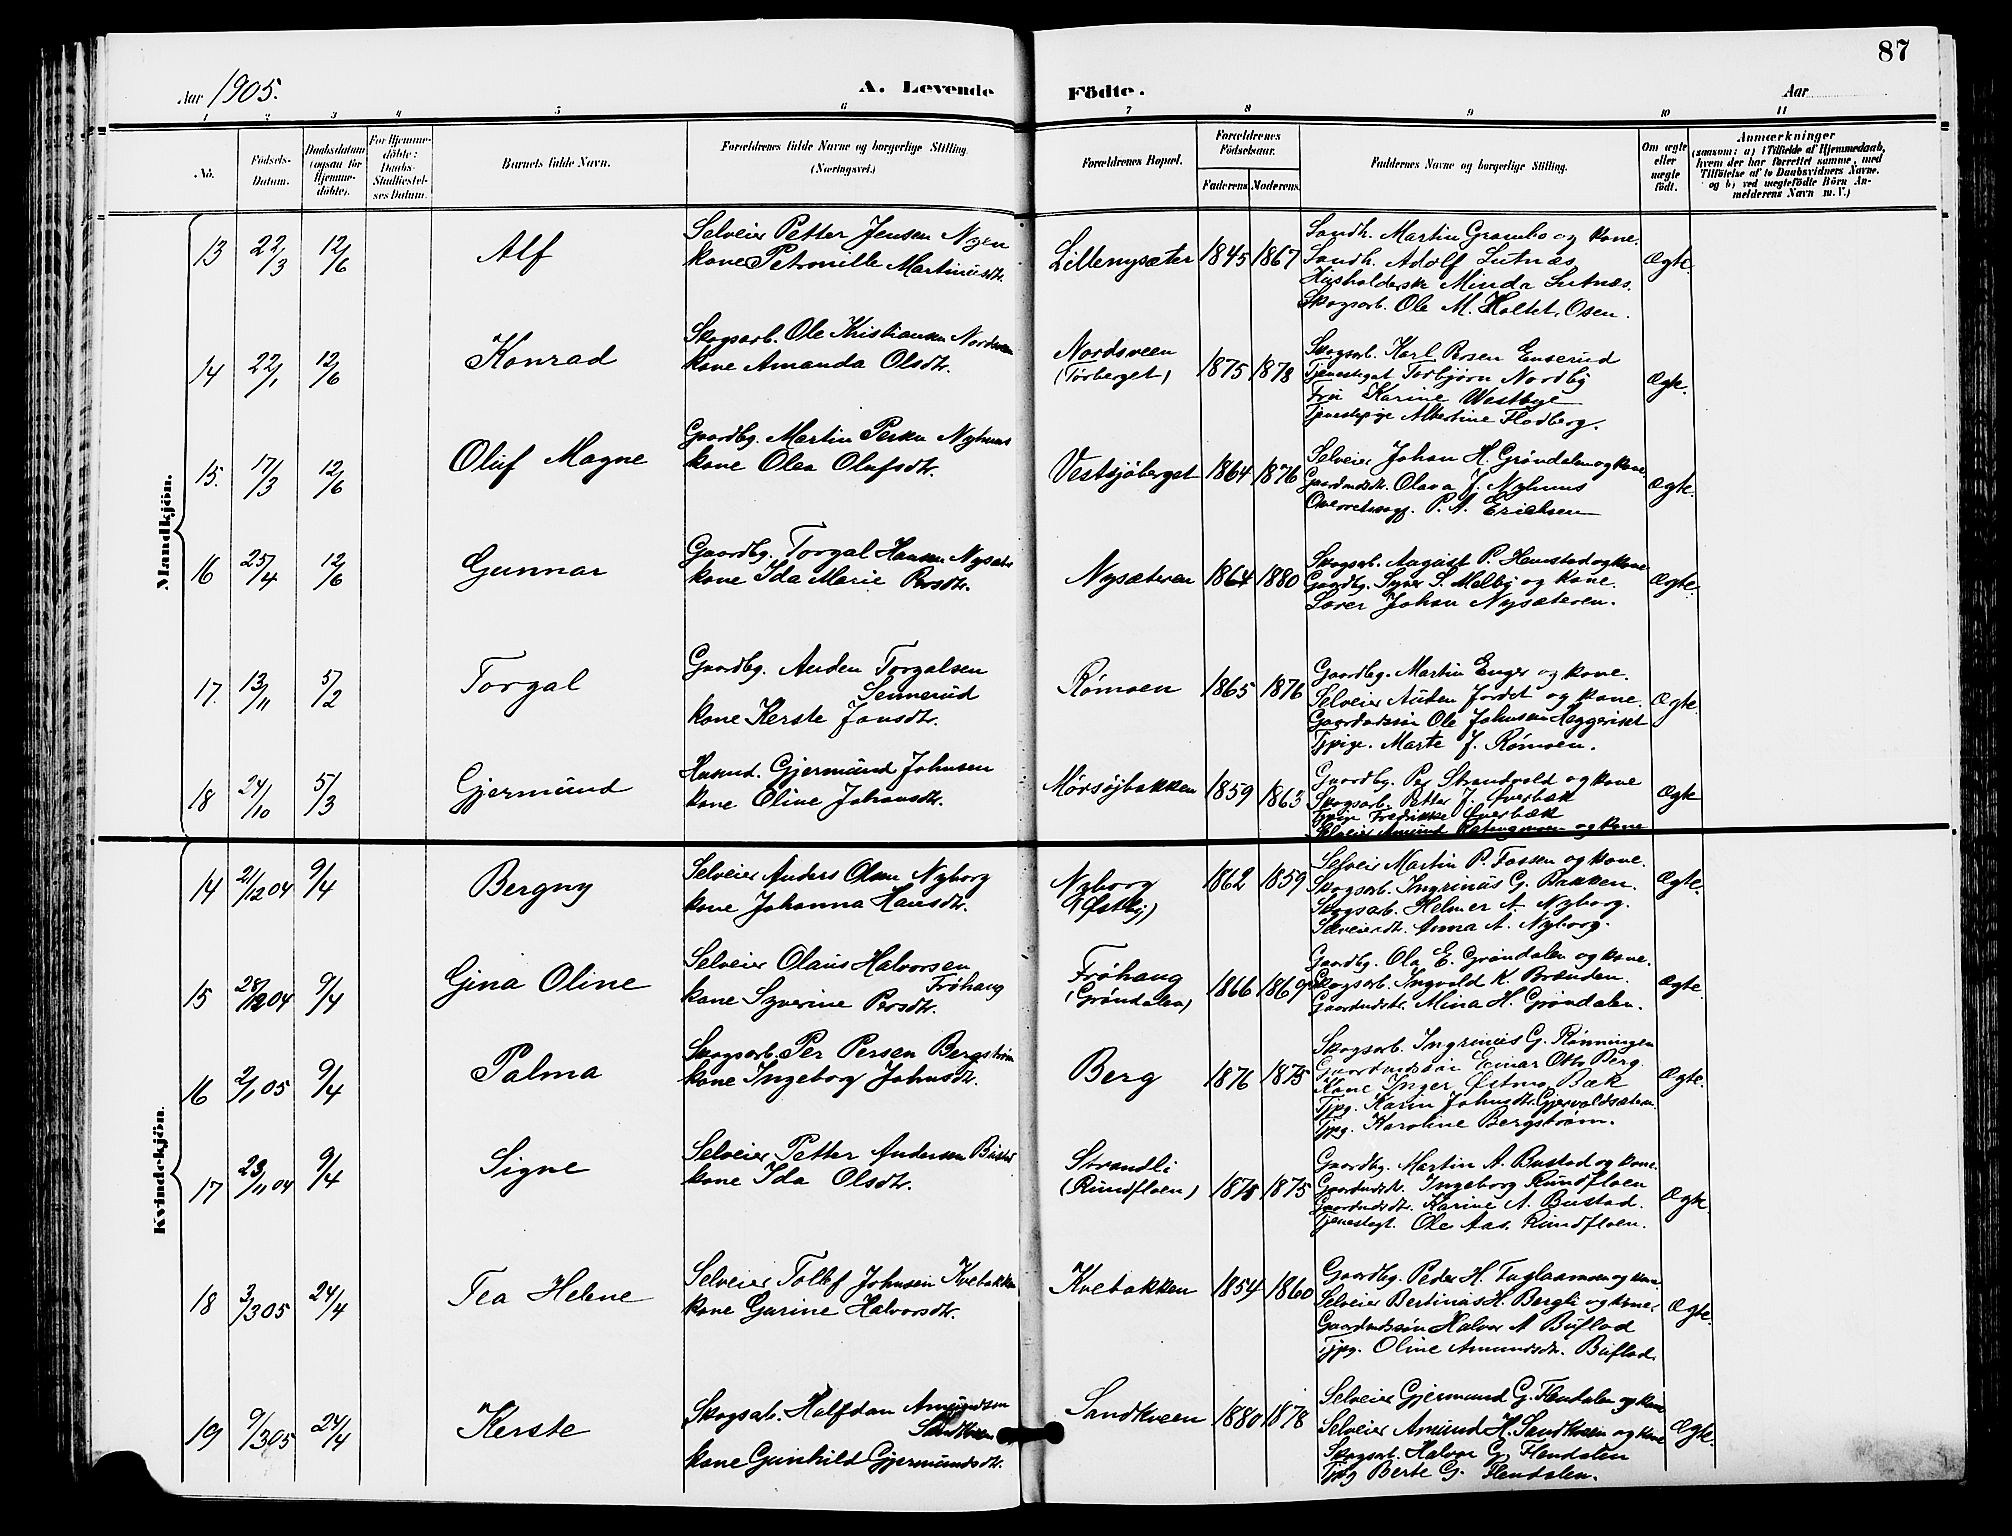 87
Aar 1905.
A. Levende Födte.
Aar
1 2 3 4 5 6 7 8 9 10 11
No.
Födsels-
Datum.
Daabsdatum
(ogsaa för
Hjemme-
döbte).
For Hjemme-
döbte:
Daabs-
Stadfæstel-
ses Datum.
Barnets fulde Navn.
Forældrenes fulde Navne og borgerlige Stilling.
(Næringsvei.)
Forældrenes Bopæl.
Forældrenes
Födselsaar.
Faderens Moderens
Faddernes Navne og borgerlige Stilling.
Om ægte
eller
uægte
födt.
Anmærkninger
(saasom: a) i Tilfælde af Hjemmedaab,
hvem der har forrettet samme, med
Tilföielse af to Daabsvidners Navne,
og b) ved uægtefödte Börn An-
melderens Navn m. V.)
Mandkjön.
13 22/3 12/6 Alf
Selveier Petter Jensen Nyen
kone Petronille Martinusdtr.
Lillenysæter 1845 1867
Sandh. Martin Grambo og kone.
Sandh. Adolf Lutnæs
Husholderske Minda Lutnæs.
Skogsarb. Ole M. Holtet, Osen.
Ægte.
14 22/1 12/6 Konrad
Skogsarb. Ole Kristiansen Nordsveen
kone Amanda Olsdtr.
Nordsveen
(Törberget) 1875 1878
Skogsarb. Karl Rosen Enserud
Tjenestegut Torbjörn Nordby
Frü Karine Westbye
Tjenestepige Albertine Flodberg.
Ægte.
15. 17/3 12/6 Oluf Magne
Gaardbg. Martin Persen Nyhuus
kone Olea Olufsdtr.
Vestsjöberget 1864 1876
Selveier Johan H. Gröndalen og kone
Gaardmdsdtr. Olava J. Nyhuus
P. A. Erichsen
Ægte.
16 25/4 12/6 Gunnar
Gaardbg. Torgal Hansen Nysæter
kone Ida Marie Persdtr.
Nysæteren 1864 1880
Skogsarb. August P. Hemstad og kone
Gaardbg. Syver S. Melby og kone.
Lærer Johan Nysæteren.
Ægte.
17. 13/11 5/2 Torgal
Gaardbg. Auden Torgalsen
Sennerud
kone Kerste Jonsdtr.
Römoen 1865 1876
Gaardbg. Martin Enger og kone.
Selveier Auden Jordet og kone.
Gaardmdssön Ole Johnsen Heggeriset
Tjpige. Marte J. Römoen.
Ægte.
18 24/10 5/3 Gjermund
Husmd. Gjermund Johnsen
kone Oline Johansdtr.
Mörsöjbakken 1859 1863
Gaardbg. Per Strandvold og kone
Skogsarb. Petter J. Øverbæk
Tjpige Fredrikke Øverbæk
Selveier Amund og kone
Ægte
Kvindekjön.
14 21/12 04 9/4 Bergny
Selveier Anders Olsen Nyborg
kone Johanna Hansdtr.
Nyborg
(Østby) 1862 1859
Selveier Martin P. Fossen og kone.
Skogsarb. Ingrinus G. Bakken.
Skogsarb. Helmer A. Nyborg.
Selveierdtr. Anna A. Nyborg.
Ægte.
15 28/12 04 9/4 Gina Oline
Selveier Olaus Halvorsen
Fröhaug
kone Syverine Persdtr.
Fröhaug
(Gröndalen) 1866 1869
Gaardbg. Ola E. Gröndalen og kone.
Skogsarb. Ingvald K. Brænden.
Gaardmdsdtr. Mina H. Gröndalen.
Ægte.
16 2/1 05 9/4 Palma
Skogsarb. Per Persen Bergström
kone Ingeborg Johnsdtr.
Berg 1876 1875
Skogsarb. Ingrinus G. Rönningen
Gaardmdssön Einar Otto Berg
Kone Inger Østmo Bæk
Tjpg. Karin Johnsdtr. Gjervoldsæteren.
Tjpg. Karoline Bergström.
Ægte.
17 23/11 04 9/4 Signe
Selveier Petter Andersen Bustad
kone Ida Olsdtr.
Strandli
(Rundfloen) 1875 1875
Gaardbg. Martin A. Bustad og kone.
Gaardmdsdtr. Ingeborg Rundfloen
Gaardmdsdtr. Karine A. Bustad.
Tjenestegt. Ole Aas. Rundfloen.
Ægte.
18 3/3 05 24/4 Tea Helene
Selveier Tollef Johnsen Kvebakken
kone Gurine Halvorsdtr.
Kvebakken 1854 1860
Gaardbg. Peder H. Fuglaasmoen og kone
Selveier Bertinus H. Bergli og kone.
Gaardmdssön Halvor A. Buflod
Tjpg. Oline Amundsdtr. Buflod.
Ægte.
19 9/3 05 24/4 Kerste
Skogsarb. Halfdan Amundsen
Sandkveen
kone Gunhild Gjermundsdtr.
Sandkveen 1880 1878
Selveier Gjermund G. Flendalen og kone
Selveier Amund H. Sandkveen og kone
Skogsarb. Halvor G. Flendalen
Tjpg Berte G. Flendalen.
Ægte.